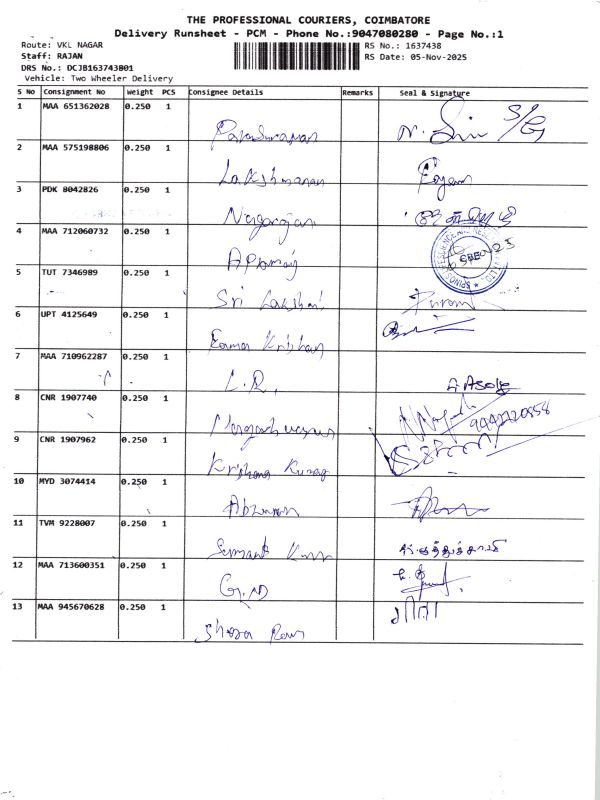 THE PROFESSIONAL COURIERS, COIMBATORE
Delivery Runsheet - PCM - Phone No.:9047080280 - Page No.:1
Route: VKL NAGAR
RS No.: 1637438
Staff: RAJAN
RS Date: 05-Nov-2025
DRS No.: DCJB163743801
Vehicle: Two Wheeler Delivery
S No Consignment No Weight PCS Consignee Details Remarks Seal & Signature
1 MAA 651362028 0.250 1
2 MAA 575198806 0.250 1 Lakshmanan
3 PDK 8042826 0.250 1 Nagarajan
4 MAA 712060732 0.250 1
5 TUT 7346989 0.250 1 Sri Lakshmi
6 UPT 4125649 0.250 1 Rama Krishan
7 MAA 710962287 0.250 1 L.R.
8 CNR 1907740 0.250 1 9942220858
9 CNR 1907962 0.250 1 Krishna Kumar
10 MYD 3074414 0.250 1
11 TVM 9228007 0.250 1
12 MAA 713600351 0.250 1 G.ND
13 MAA 945670628 0.250 1